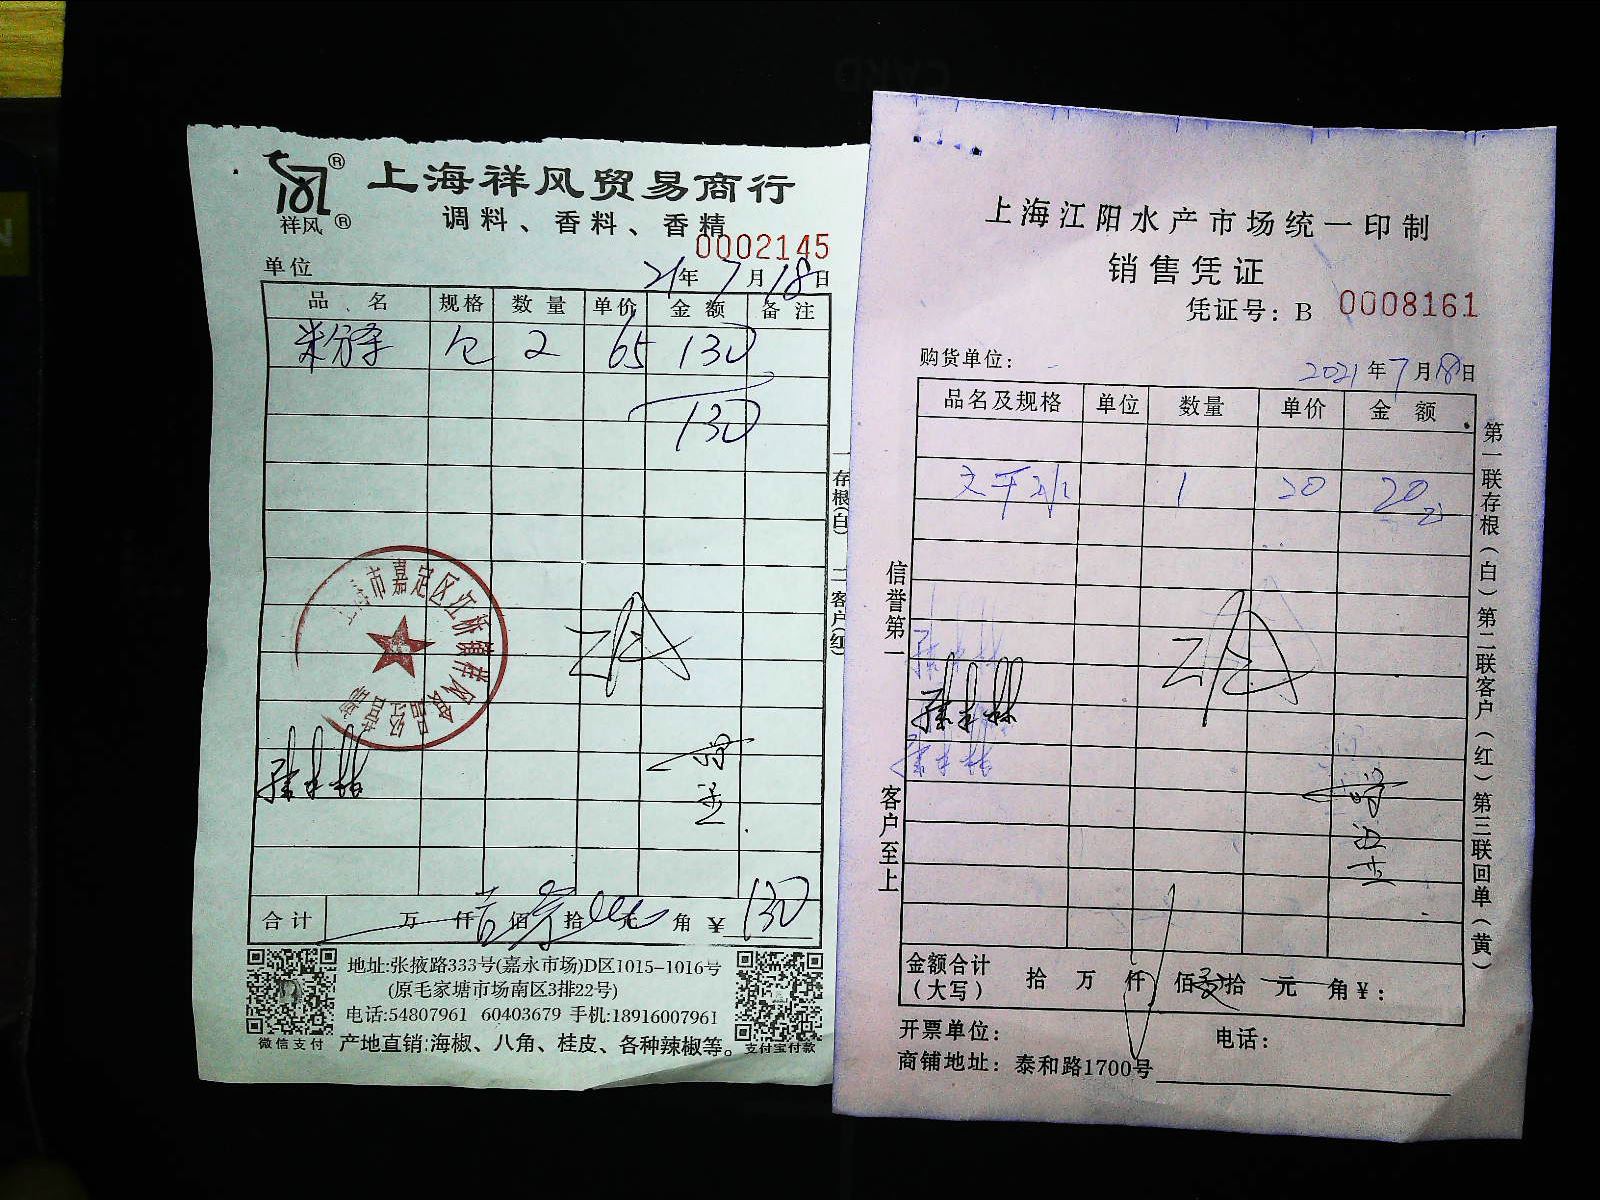 上海祥风贸易商行
祥风
调料、香料、香精
0002145
单位
21年7月18日
品名 规格 数量 单价 金额 备注
2 65 130
130
一存根(白) 二客户(红)
上海市嘉定区江桥镇祥风食品经营部
合计 万 仟 佰 拾 元 角 ¥ 130
地址:张掖路333号(嘉永市场)D区1015-1016号
(原毛家塘市场南区3排22号)
电话:54807961 60403679 手机:18916007961
微信支付 产地直销:海椒、八角、桂皮、各种辣椒等。 支付宝付款
上海江阳水产市场统一印制
销售凭证
凭证号: B 0008161
购货单位:
2021年7月18日
品名及规格 单位 数量 单价 金额
1 20 20
信誉第一
客户至上
第一联存根(白)第二联客户(红)第三联回单(黄)
金额合计(大写) 拾 万 仟 佰 拾 元 角 ¥:
开票单位: 电话:
商铺地址: 泰和路1700号